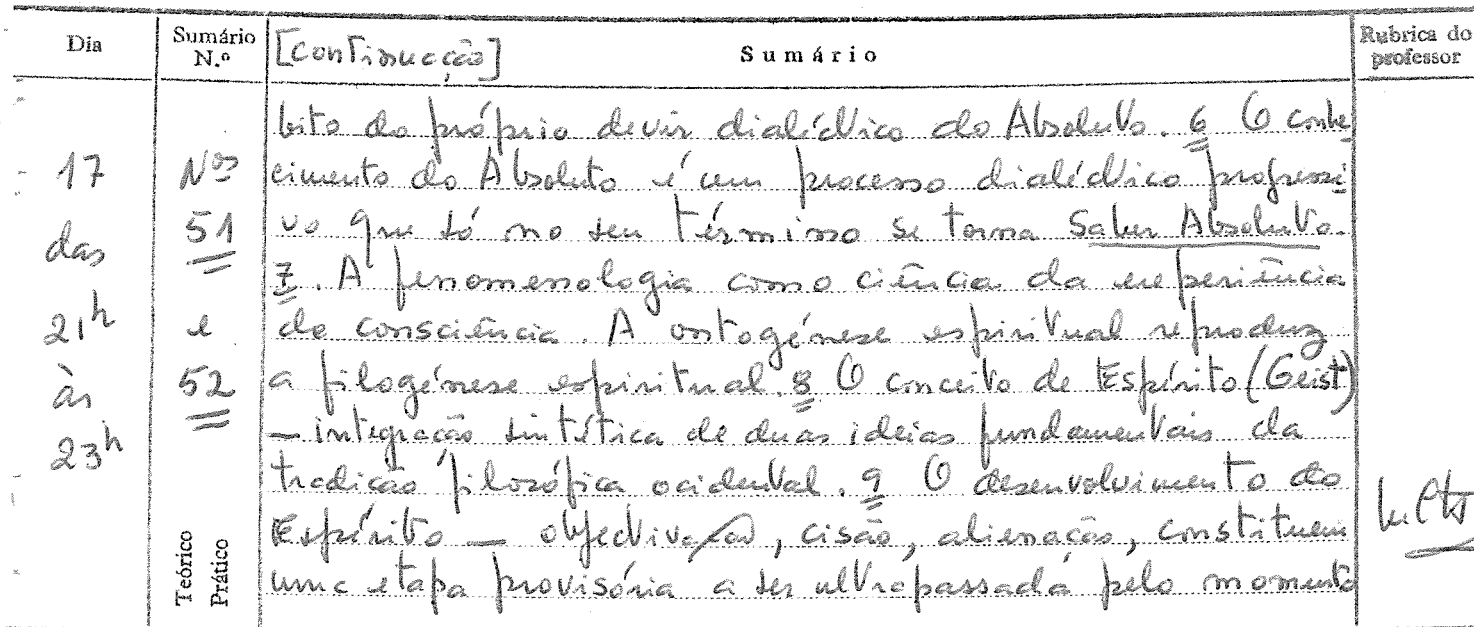 Dia
Sumário N.º
[Continuação]
Sumário
Rubrica do professor
17
das
21h
às
23h
Nos
51
e
52
Teórico
Prático
bito do próprio devir dialéctico do Absoluto. 6 O conhe
cimento do Absoluto é um processo dialéctico progressi
vo que só no seu término se torna Saber Absoluto.
7. A fenomenologia como ciência da experiência
da consciência. A ontogénese espiritual reproduz
a filogénese espiritual. 8 O conceito de Espírito (Geist)
— integração sintética de duas ideias fundamentais da
tradição filosófica ocidental. 9 O desenvolvimento do
Espírito — objectivação, cisão, alienação, constituem
uma etapa provisória a ser ultrapassada pelo momento